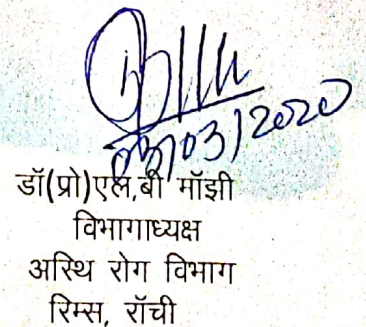 03/03/2020
डॉ(प्रो)एल,बी माँझी
विभागाध्यक्ष
अस्थि रोग विभाग
रिम्स, राँची